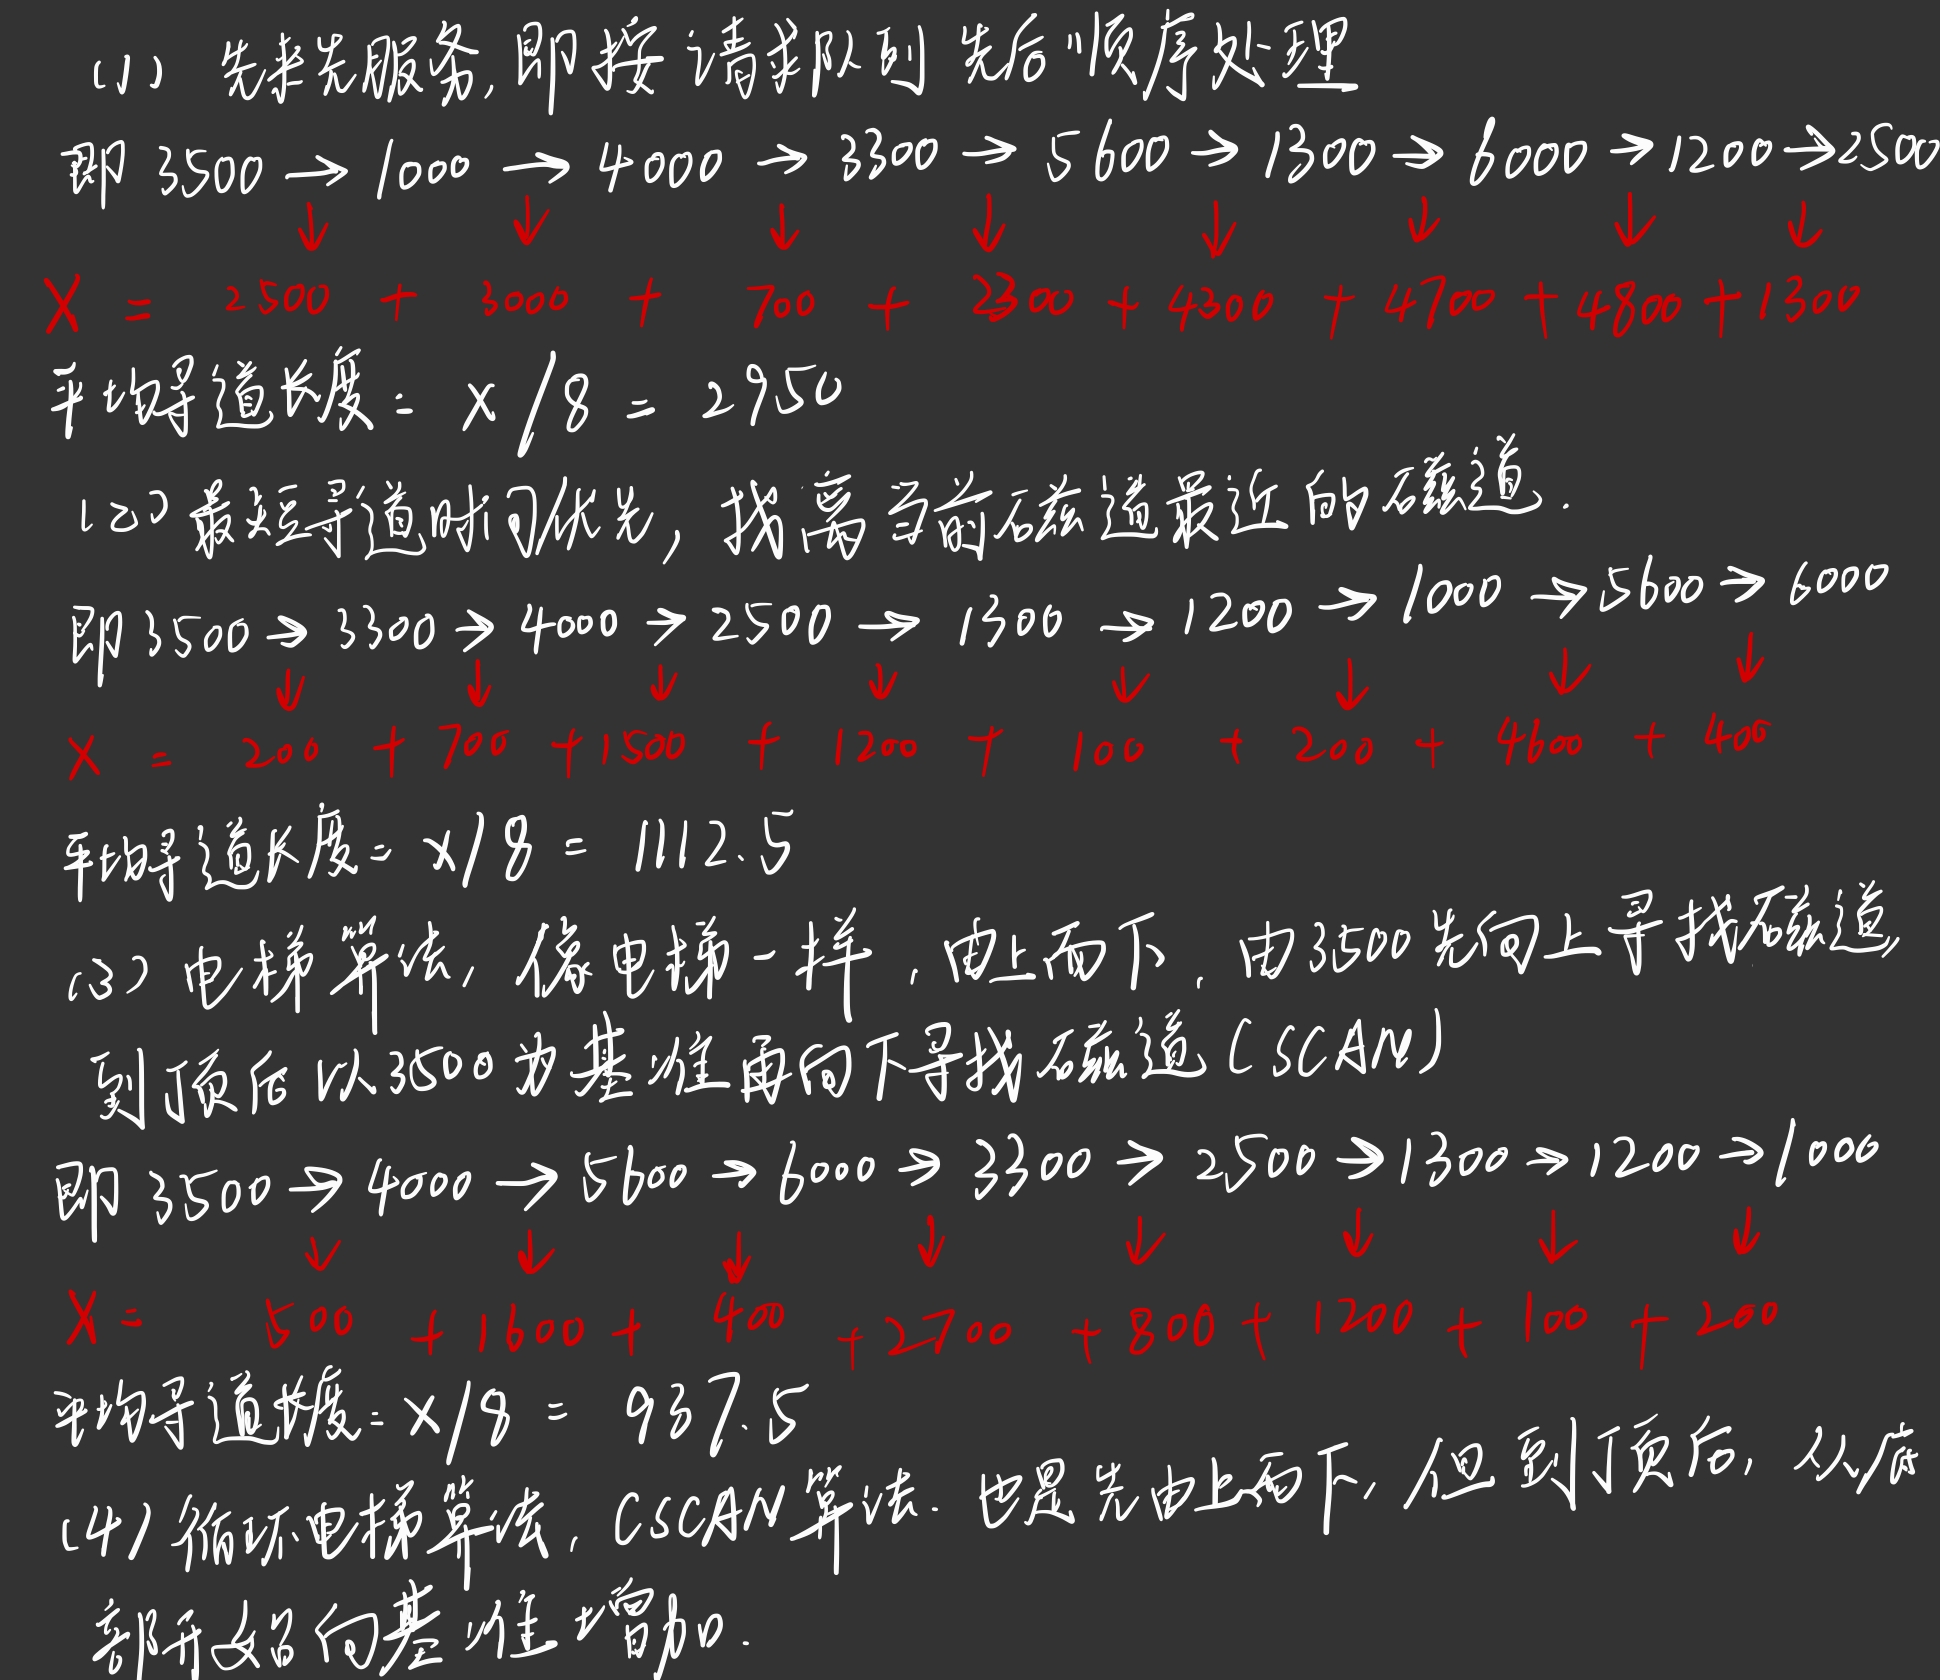 (1) 先来先服务,即按请求队列先后顺序处理
即 3500 → 1000 → 4000 → 3300 → 5600 → 1300 → 6000 → 1200 → 2500
↓ ↓ ↓ ↓ ↓ ↓ ↓ ↓
X = 2500 + 3000 + 700 + 2300 + 4300 + 4700 + 4800 + 1300
平均寻道长度 = X / 8 = 2950
(2) 最短寻道时间优先, 找离当前磁道最近的磁道.
即 3500 → 3300 → 4000 → 2500 → 1300 → 1200 → 1000 → 5600 → 6000
↓ ↓ ↓ ↓ ↓ ↓ ↓ ↓
X = 200 + 700 + 1500 + 1200 + 100 + 200 + 4600 + 400
平均寻道长度 = X/8 = 1112.5
(3) 电梯算法, 像电梯一样, 由上而下, 由3500先向上寻找磁道,
到顶后以3500为基准再向下寻找磁道 (SCAN)
即 3500 → 4000 → 5600 → 6000 → 3300 → 2500 → 1300 → 1200 → 1000
↓ ↓ ↓ ↓ ↓ ↓ ↓ ↓
X = 500 + 1600 + 400 + 2700 + 800 + 1200 + 100 + 200
平均寻道长度 = X/8 = 937.5
(4) 循环电梯算法, CSCAN算法. 也是先由上而下, 但到顶后, 从底
部开始向基准增加.